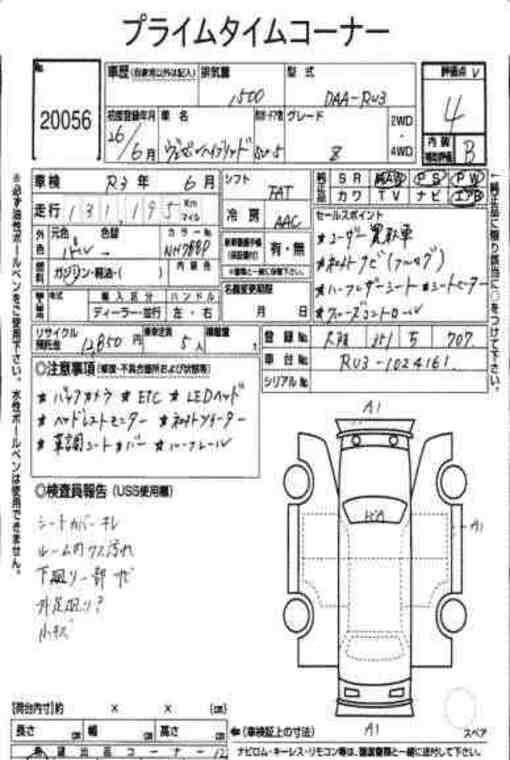 プライムタイムコーナー
No.
20056
車歴 (自家用以外は記入)
排気量
1500
型式
DAA-RU3
評価点 V
4
内装
補助評価
B
初度登録年月
26/6月
車名
ヴェゼルハイブリッド
グレード
Z
2WD
・
4WD
車検 R3年 6月
シフト
FAT
純正品
SR 純AW PS PW
カワ TV ナビ エアB
走行 131,195 Km マイル
冷房
AAC
セールスポイント
★ユーザー買取車
外色
元色
パール
色替
カラーNo.
NH788P
内装色
有・無
燃料
ガソリン・軽油・( )
★ハーフレザーシート ★シートヒーター
★クルーズコントロール
年式
輸入区分
ハンドル
ディーラー・並行
左・右
名義変更期限
月 日
リサイクル
預託金
12,850円
乗車定員
5人
積載量
t
登録No.
大阪 351 5 707
車台No.
RU3-1024161
シリアルNo.
◎注意事項 (修復・不具合箇所および状態等)
★バックカメラ ★ETC ★LEDヘッド
★ヘッドレストモニター
★革調シートカバー ★ルーフレール
◎検査員報告 (USS使用欄)
シートカバーキレ
ルーム内クスミ汚れ
下廻り一部サビ
小キズ
A1
A1
A1
スペア
【荷台内寸】約 × × (cm)
長さ cm 幅 cm 高さ cm
←(車検証上の寸法)
希望出品コーナー
ナビロム・キーレス・リモコン等は、譲渡書類と一緒に送付して下さい。
※必ず油性ボールペンをご使用下さい。水性ボールペンは使用できません。